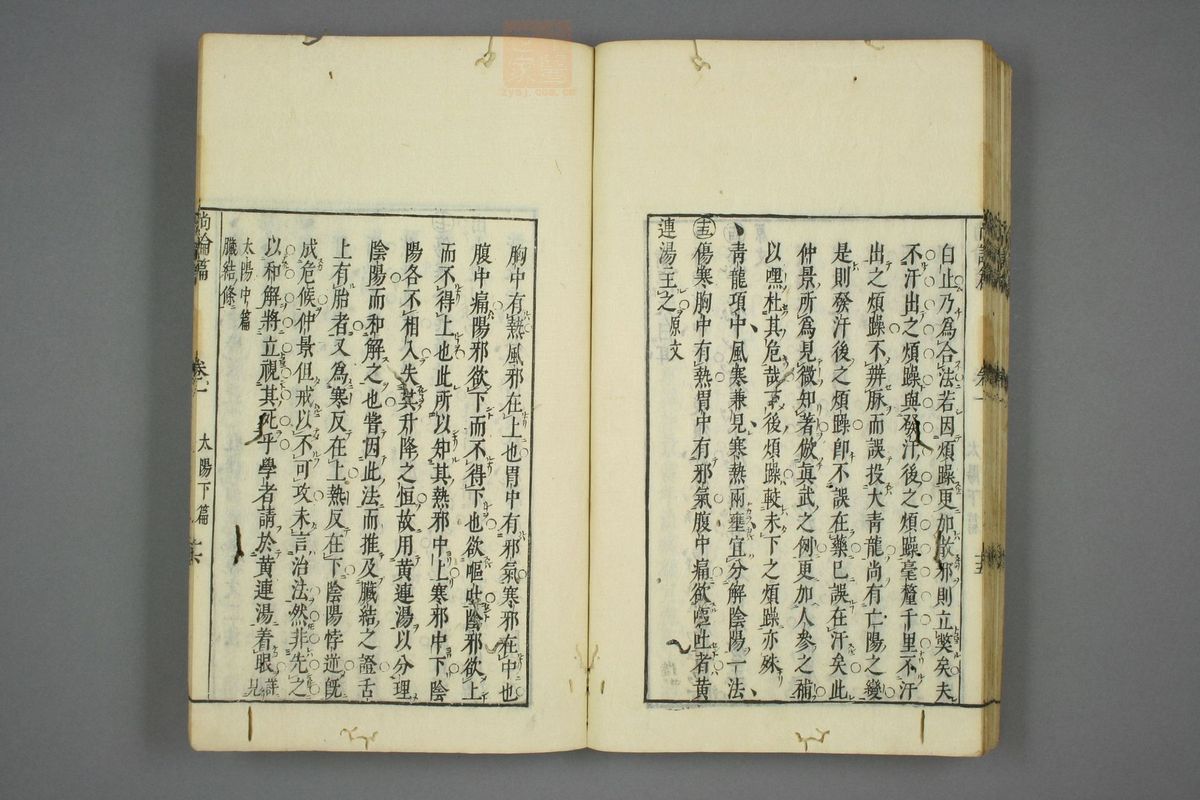 白止乃為合法若因煩躁更加散邪則立斃矣夫
不汗出之煩躁與發汗後之煩躁毫釐千里不汗
出之煩躁不辨脉而誤投大青龍尚有亡陽之變
是則發汗後之煩躁卽不誤在藥已誤在汗矣此
仲景所為見微知著倣真武之例更加人參之補
以嘿杜其危哉下後煩躁較未下之煩躁亦殊
青龍項中風寒兼見寒熱兩壅宜分解陰陽一法
傷寒胸中有熱胃中有邪氣腹中痛欲嘔吐者黃
連湯主之 原文
胸中有熱風邪在上也胃中有邪氣寒邪在中也
腹中痛陽邪欲下而不得下也欲嘔吐陰邪欲上
而不得上也此所以知其熱邪中上寒邪中下陰
陽各不相入失其升降之恒故用黃連湯以分理
陰陽而和解之也嘗因此法而推及臟結之證舌
上有胎者又為寒反在上熱反在下陰陽悖逆旣
成危候仲景但戒以不可攻未言治法然非先之
以和解將立視其死乎學者請於黃連湯着眼 詳見
太陽中篇
臟結條
尚論篇 卷一 太陽下篇